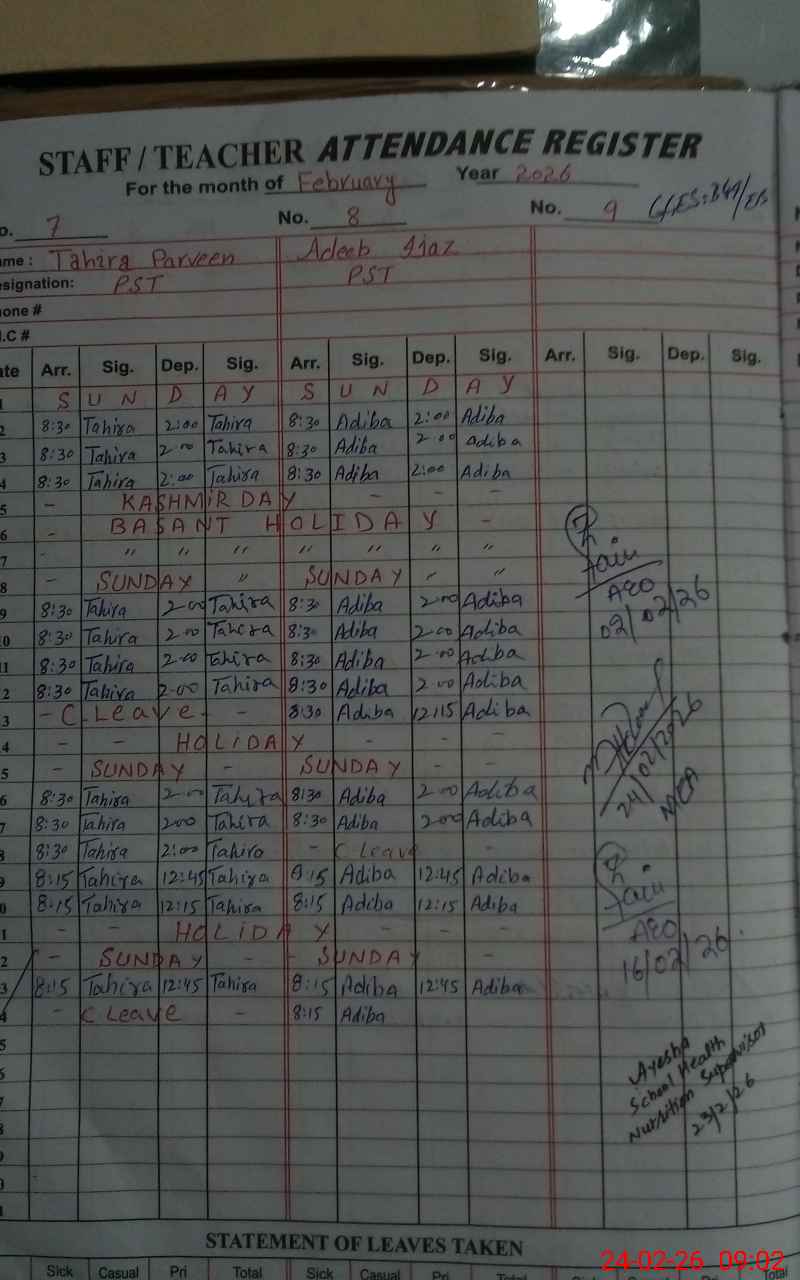 STAFF / TEACHER ATTENDANCE REGISTER
For the month of February Year 2026
o. 7 No. 8 No. 9
ame : Tahira Parveen Adeeb Ijaz
esignation: PST PST
hone #
.C #
ate Arr. Sig. Dep. Sig. Arr. Sig. Dep. Sig. Arr. Sig. Dep. Sig.
1 S U N D A Y S U N D A Y
2 8:30 Tahira 2:00 Tahira 8:30 Adiba 2:00 Adiba
3 8:30 Tahira 2:00 Tahira 8:30 Adiba 2:00 adiba
4 8:30 Tahira 2:00 Tahira 8:30 Adiba 2:00 Adiba
5 - KASHMIR DAY - - -
6 - BASANT HOLIDAY -
7 - " " " " " " "
8 - SUNDAY " SUNDAY " "
9 8:30 Tahira 2-00 Tahira 8:30 Adiba 2:00 Adiba
0 8:30 Tahira 2-00 Tahira 8:30 Adiba 2-00 Adiba
11 8:30 Tahira 2-00 Tahira 8:30 Adiba 2-00 Adiba
2 8:30 Tahira 2-00 Tahira 8:30 Adiba 2-00 Adiba
3 - C Leave - - 8:30 Adiba 12:15 Adiba
4 - - HOLIDAY - - -
5 - SUNDAY - SUNDAY - -
6 8:30 Tahira 2-00 Tahira 8:30 Adiba 2-00 Adiba
7 8:30 Tahira 2:00 Tahira 8:30 Adiba 2:00 Adiba
8 8:30 Tahira 2:00 Tahira - C Leave
9 8:15 Tahira 12:45 Tahira 8:15 Adiba 12:45 Adiba
0 8:15 Tahira 12:15 Tahira 8:15 Adiba 12:15 Adiba
1 - - HOLIDAY - - -
2 - SUNDAY - - SUNDAY -
3 8:15 Tahira 12:45 Tahira 8:15 Adiba 12:45 Adiba
4 - C Leave - 8:15 Adiba
5
6
7
8
9
0
1
AEO
02/02/26
24/02/2026
MEA
AEO
16/02/26
Ayesha
School Health
Nutrition Supervisor
23/2/26
STATEMENT OF LEAVES TAKEN
Sick Casual Pri Total Sick Casual Pri Total
24-02-26 09:02